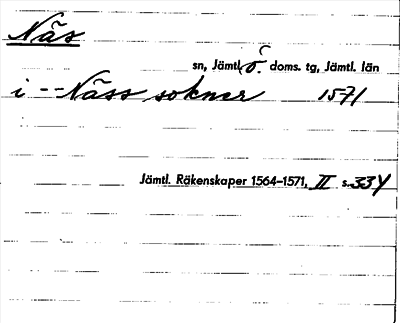 Näs
sn, Jämtl. ö. doms. tg, Jämtl. län
i -- Näss soknar 1571
Jämtl. Räkenskaper 1564–1571, II s. 334